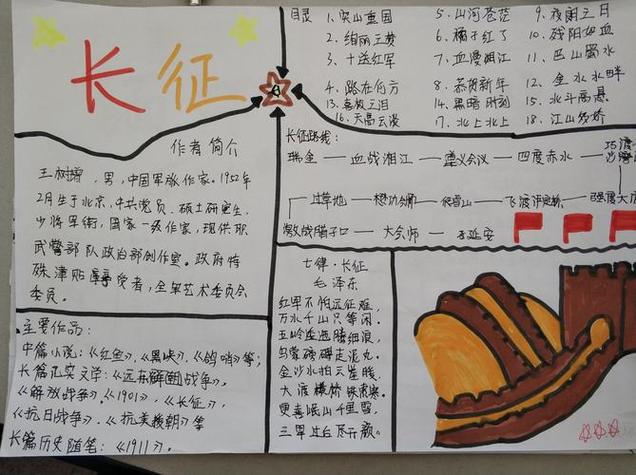 长征
作者简介
王树增，男，中国军旅作家。1952年
2月生于北京，中共党员、硕士研究生，
少将军衔，国家一级作家，现供职
武警部队政治部创作室。政府特
殊津贴享受者，全军艺术委员会
委员。
主要作品：
中篇小说：《红鱼》，《黑峡》，《鸽哨》等；
长篇纪实文学：《远东朝鲜战争》，
《解放战争》，《1901》，《长征》，
《抗日战争》，《抗美援朝》等
长篇历史随笔：《1911》。
目录
1、突山重围
2、绚丽之梦
3、十送红军
4、路在何方
5、山河苍茫
6、橘子红了
7、血漫湘江
8、恭贺新年
9、夜郎之日
10、残阳如血
11、巴山蜀水
12、金水水畔
13、喜极之泪
14、黑暗时刻
15、北斗高悬
16、天高云淡
17、北上北上
18、江山多娇
长征路线：
瑞金—血战湘江—遵义会议—四度赤水—巧渡金沙江
过草地—懋功会师—爬雪山—飞渡泸定桥—强渡大渡
激战腊子口—大会师—到延安
七律·长征
毛泽东
红军不怕远征难，
万水千山只等闲。
五岭逶迤腾细浪，
乌蒙磅礴走泥丸。
金沙水拍云崖暖，
大渡横桥铁索寒。
更喜岷山千里雪，
三军过后尽开颜。